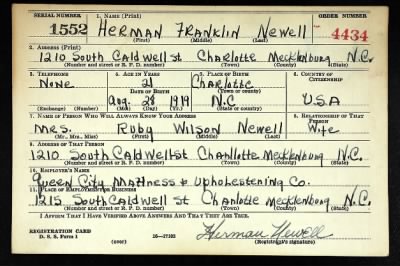 SERIAL NUMBER 1. NAME (Print) ORDER NUMBER
1552 HERMAN FRANKLIN Newell 4434
(First) (Middle) (Last)
2. ADDRESS (Print)
1210 South Caldwell st Charlotte Mecklenburg N.C.
(Number and street or R. F. D. number) (Town) (County) (State)
3. TELEPHONE 4. AGE IN YEARS 5. PLACE OF BIRTH 6. COUNTRY OF CITIZENSHIP
None 21 Charlotte
DATE OF BIRTH (Town or county)
Aug. 28 1919 N.C U.S.A
(Exchange) (Number) (Mo.) (Day) (Yr.) (State or country)
7. NAME OF PERSON WHO WILL ALWAYS KNOW YOUR ADDRESS 8. RELATIONSHIP OF THAT PERSON
Mrs. Ruby Wilson Newell Wife
(Mr., Mrs., Miss) (First) (Middle) (Last)
9. ADDRESS OF THAT PERSON
1210 South Caldwell st Charlotte Mecklenburg N.C.
(Number and street or R. F. D. number) (Town) (County) (State)
10. EMPLOYER'S NAME
Queen City Mattness & Upholestering Co.
11. PLACE OF EMPLOYMENT OR BUSINESS
1215 South Caldwell st Charlotte Mecklenburg N.C.
(Number and street or R. F. D. number) (Town) (County) (State)
I AFFIRM THAT I HAVE VERIFIED ABOVE ANSWERS AND THAT THEY ARE TRUE.
REGISTRATION CARD
D. S. S. Form 1 (over) 16-17105 Herman Newell
(Registrant's signature)